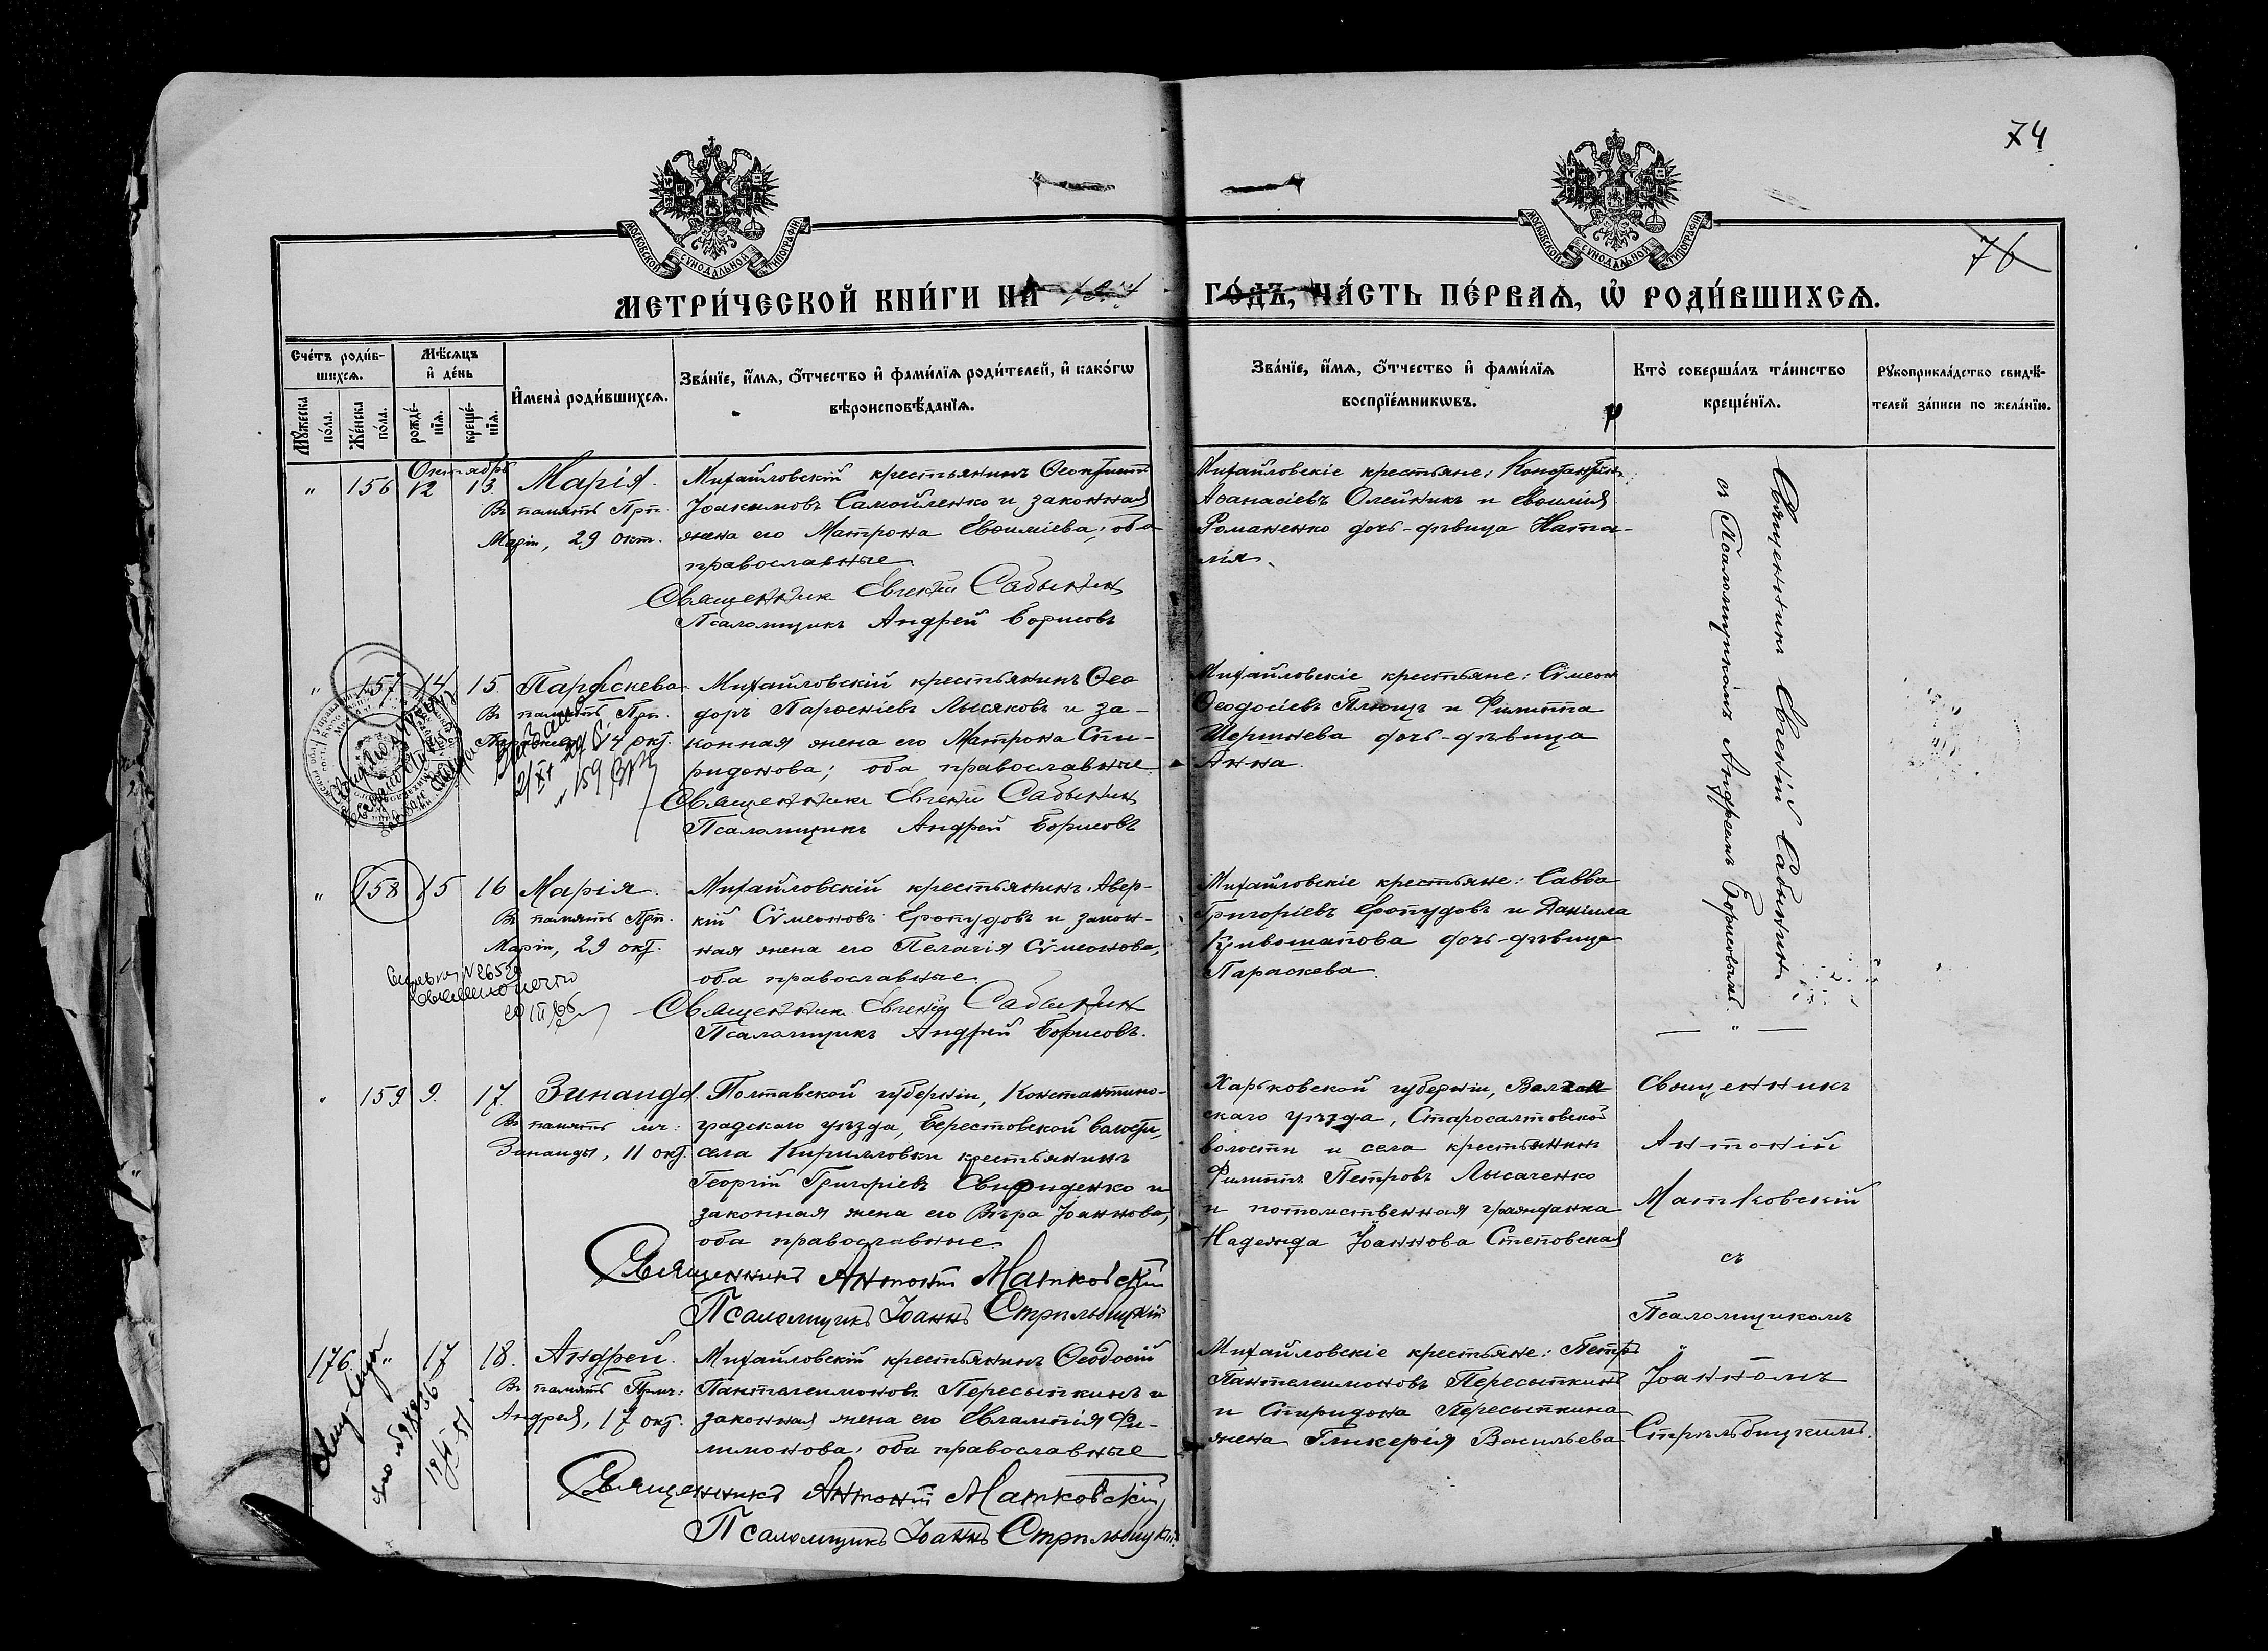 74
76
МОСКОВСКОЙ СѴНОДАЛЬНОЙ ТИПОГРАФІИ
МОСКОВСКОЙ СѴНОДАЛЬНОЙ ТИПОГРАФІИ
МЕТРИ́ЧЕСКОЙ КНИ́ГИ НА
ГО́ДЪ, ЧА́СТЬ ПЕ́РВАѦ, Ѽ РОДИ́ВШИХСѦ.
Сче́тъ роди́в-
шихсѧ.
Мꙋ́жеска по́ла.
Же́нска по́ла.
Мѣ́сѧцъ
и҆ де́нь
рожде́-
нїѧ.
креще́-
нїѧ.
И҆мена̀ роди́вшихсѧ.
Зва́нїе, и҆́мѧ, ѻ҆́тчество и҆ фами́лїѧ роди́телей, и҆ како́гѡ
вѣроисповѣ́данїѧ.
Зва́нїе, и҆́мѧ, ѻ҆́тчество и҆ фами́лїѧ
воспрїе́мникѡвъ.
Кто̀ соверша́лъ та́инство
креще́нїѧ.
Рꙋкоприкла́дство свидѣ́-
телей за́писи по жела́нїю.
Октябрь
" 156 12 13 Марія.
Въ память Прп.
Маріи, 29 окт.
Михайловскій крестьянинъ Ѳеоктистъ
Іоакимовъ Самойленко и законная
жена его Матрона Евѳиміева; оба
православные
Священникъ Евгеній Сабынин
Псаломщикъ Андрей Борисовъ
Михайловскіе крестьяне: Константинъ
Аѳанасіевъ Олейникъ и
Романенко дочь-дѣвица Ната-
лія.
Священникъ Евгеній Сабынинъ
съ Псаломщикомъ Андреемъ Борисовымъ.
" 157 14 15 Параскева
Въ память Прп.
14 окт.
159
Михайловскій крестьянинъ Ѳео
доръ Парѳеніевъ Лысяковъ и за-
конная жена его Матрона Спи-
ридонова; оба православные.
Священникъ Евгеній Сабынин
Псаломщикъ Андрей Борисовъ
Михайловскіе крестьяне: Сѵмеон
Ѳеодосіевъ Плющъ и Филиппа
дочь-дѣвица
Анна.
" 158 15 16 Марія.
Въ память Прп.
Маріи, 29 окт.
Михайловскій крестьянинъ Авер-
кій Сѵмеоновъ Ѳропудовъ и закон-
ная жена его Пелагія Сѵмеонова,
оба православные.
Священник Евгеній Сабынин
Псаломщикъ Андрей Борисовъ.
Михайловскіе крестьяне: Савва
Григоріевъ Ѳропудовъ и Даніила
Кривошапова дочь-дѣвица
Параскева.
" 159 9. 17 Зинаида.
Въ память мч:
Зинаиды, 11 окт.
Полтавской губерніи, Константино-
градскаго уѣзда, Берестовской волости,
села Кирилловки крестьянинъ
Георгій Григоріевъ Свириденко и
законная жена его Вѣра Іоаннова,
оба православные.
Священникъ Антоній Матковскій
Псаломщикъ Іоаннъ Стрѣльбицкій
Харьковской губерніи, Волчан
скаго уѣзда, Старосалтовской
волости и села крестьянин
Филиппъ Петровъ Лысаченко
и потомственная гражданка
Надежда Іоаннова Степовская
Священникъ
Антоній
Матковскій
съ
Псаломщикомъ
Іоанномъ
Стрѣльбицкимъ.
176. " 17 18. Андрей.
Въ память Прмч:
Андрея, 17 окт.
Михайловскій крестьянинъ Ѳеодосій
Пантелеимоновъ Пересыпкинъ и
законная жена его Евлампія Фи-
лимонова, оба православные
Священникъ Антоній Матковскій
Псаломщикъ Іоаннъ Стрѣльбицкій
Михайловскіе крестьяне: Петръ
Пантелеимоновъ Пересыпкинъ
и Спиридона Пересыпкина
жена Гликерія Васильева